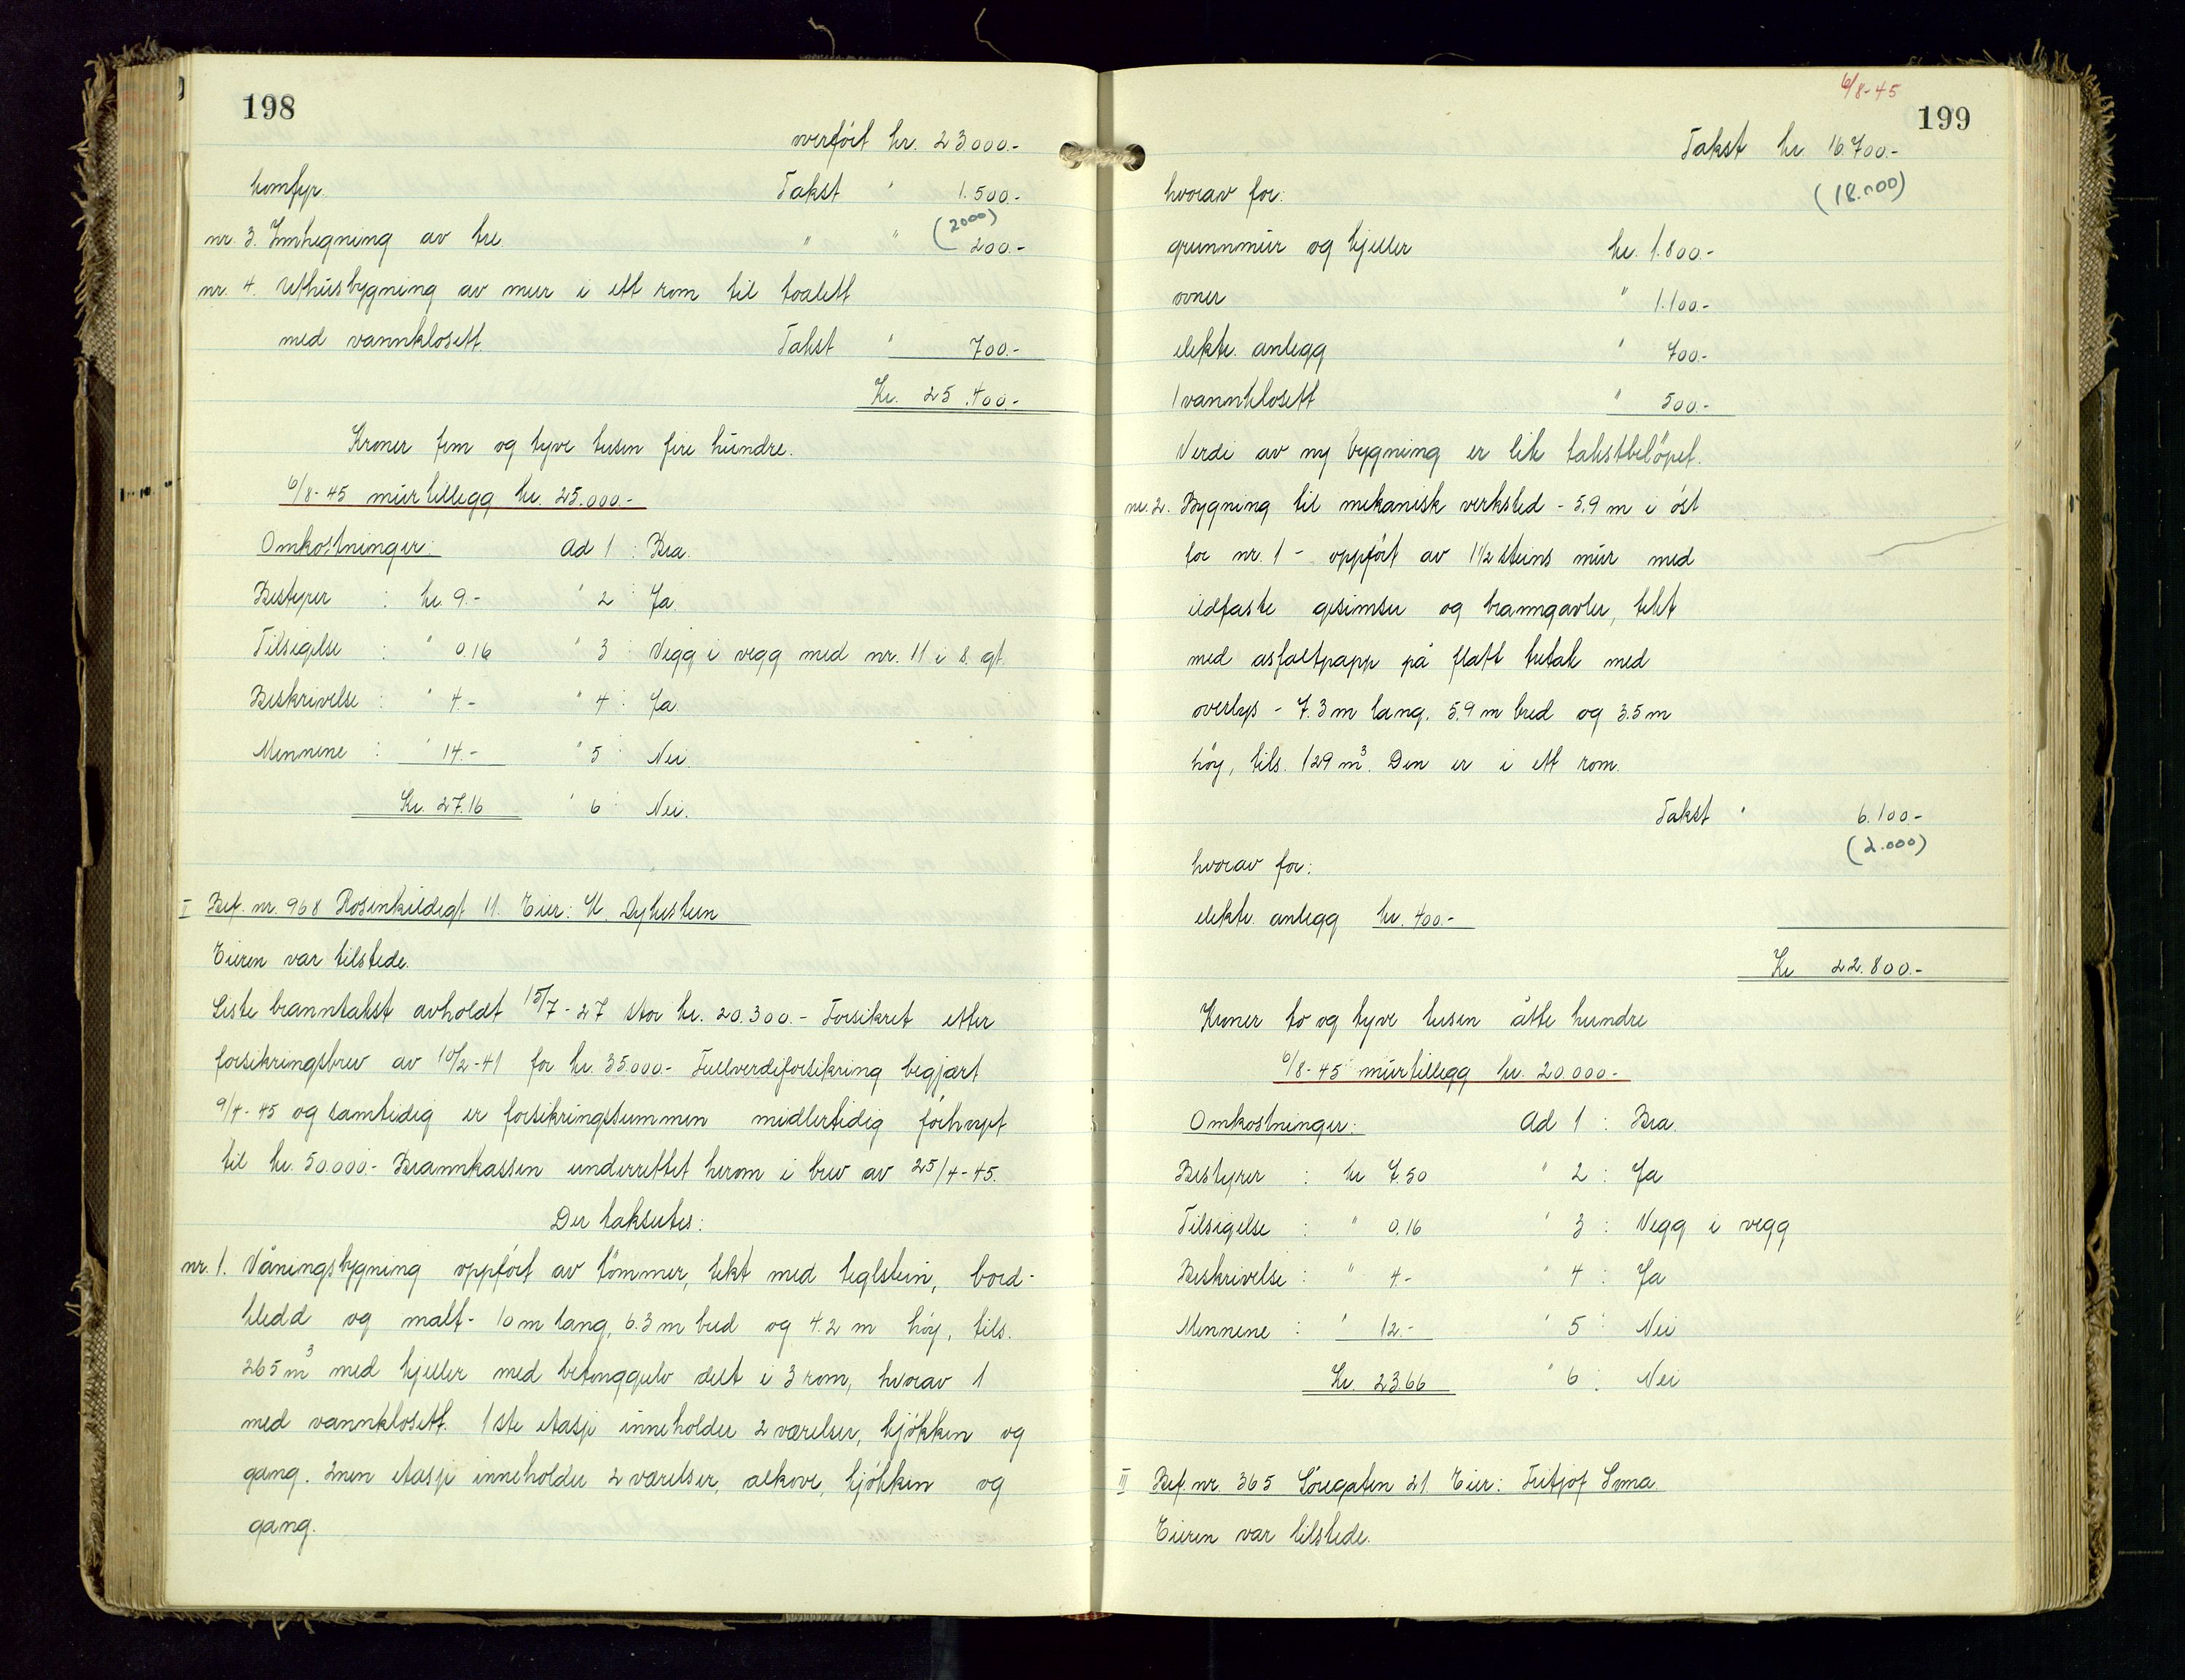 198
overført kr. 23000.-
komfyr. Takst " 1.500.-
(2000)
nr. 3. Innhegning av tre " " 200.-
nr. 4. Uthusbygning av mur i ett rom til toalett
med vannklosett. Takst " 700.-
Kr. 25.400.-
Kroner fem og tyve tusen fire hundre.
6/8-45 murtillegg kr. 25.000.-
Omkostninger: Ad 1 : Bra.
Bestyrer : kr. 9.- " 2 : Ja.
Tilsigelse : " 0.16 " 3 : Vegg i vegg med nr. 11 i 8. gt.
Beskrivelse : " 4.- " 4 : Ja.
Mennene : " 14.- " 5 : Nei.
Kr. 27.16 " 6 : Nei.
II Bef. nr. 968 Rosenkildegt 11. Eier: U. Dykesteen
Eieren var tilstede.
Siste branntakst avholdt 15/7-27 stor kr. 20.300.- Forsikret etter
forsikringsbrev av 10/2-41 for kr. 35.000.- Fullverdiforsikring begjært
9/4-45 og samtidig er forsikringssummen midlertidig forhøyet
til kr. 50.000.- Brannkassen underrettet herom i brev av 25/4-45.
Der takseres:
nr. 1. Våningsbygning oppført av tømmer, tekt med teglstein, bord-
kledd og malt - 10 m lang, 6.3 m bred og 4.2 m høy, tils.
265 m³ med kjeller med betonggulv delt i 3 rom, hvorav 1
med vannklosett. 1ste etasje inneholder 2 værelser, kjøkken og
gang. 2nen etasje inneholder 2 værelser, alkove, kjøkken og
gang.
6/8-45
199
Takst kr. 16.700.-
(18.000)
hvorav for:
grunnmur og kjeller kr. 1.800.-
ovner " 1.100.-
elektr. anlegg " 700.-
1 vannklosett " 500.-
Verdi av ny bygning er lik takstbeløpet.
nr. 2. Bygning til mekanisk verksted - 5,9 m i øst
for nr. 1 - oppført av 1 1/2 steins mur med
ildfaste gesimser og branngavler, tekt
med asfaltpapp på flatt tretak med
overlys - 7.3 m lang, 5,9 m bred og 3.5 m
høy, tils. 129 m³. Den er i ett rom.
Takst " 6.100.-
(2.000)
hvorav for:
elektr. anlegg kr. 400.-
Kr 22.800.-
Kroner to og tyve tusen åtte hundre
6/8-45 murtillegg kr. 20.000.-
Omkostninger: Ad 1 : Bra.
Bestyrer : kr 7.50 " 2 : Ja
Tilsigelse : " 0.16 " 3 : Vegg i vegg
Beskrivelse : " 4.- " 4 : Ja
Mennene : " 12.- " 5 : Nei
Kr. 23.66 " 6 : Nei
III Bef. nr. 365 Søregaten 21. Eier: Fritjof Soma.
Eieren var tilstede.